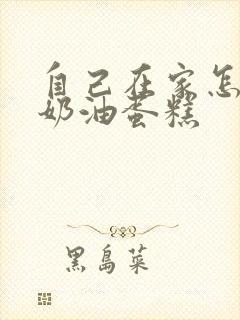 自己在家怎
奶油蛋糕
黑岛菜